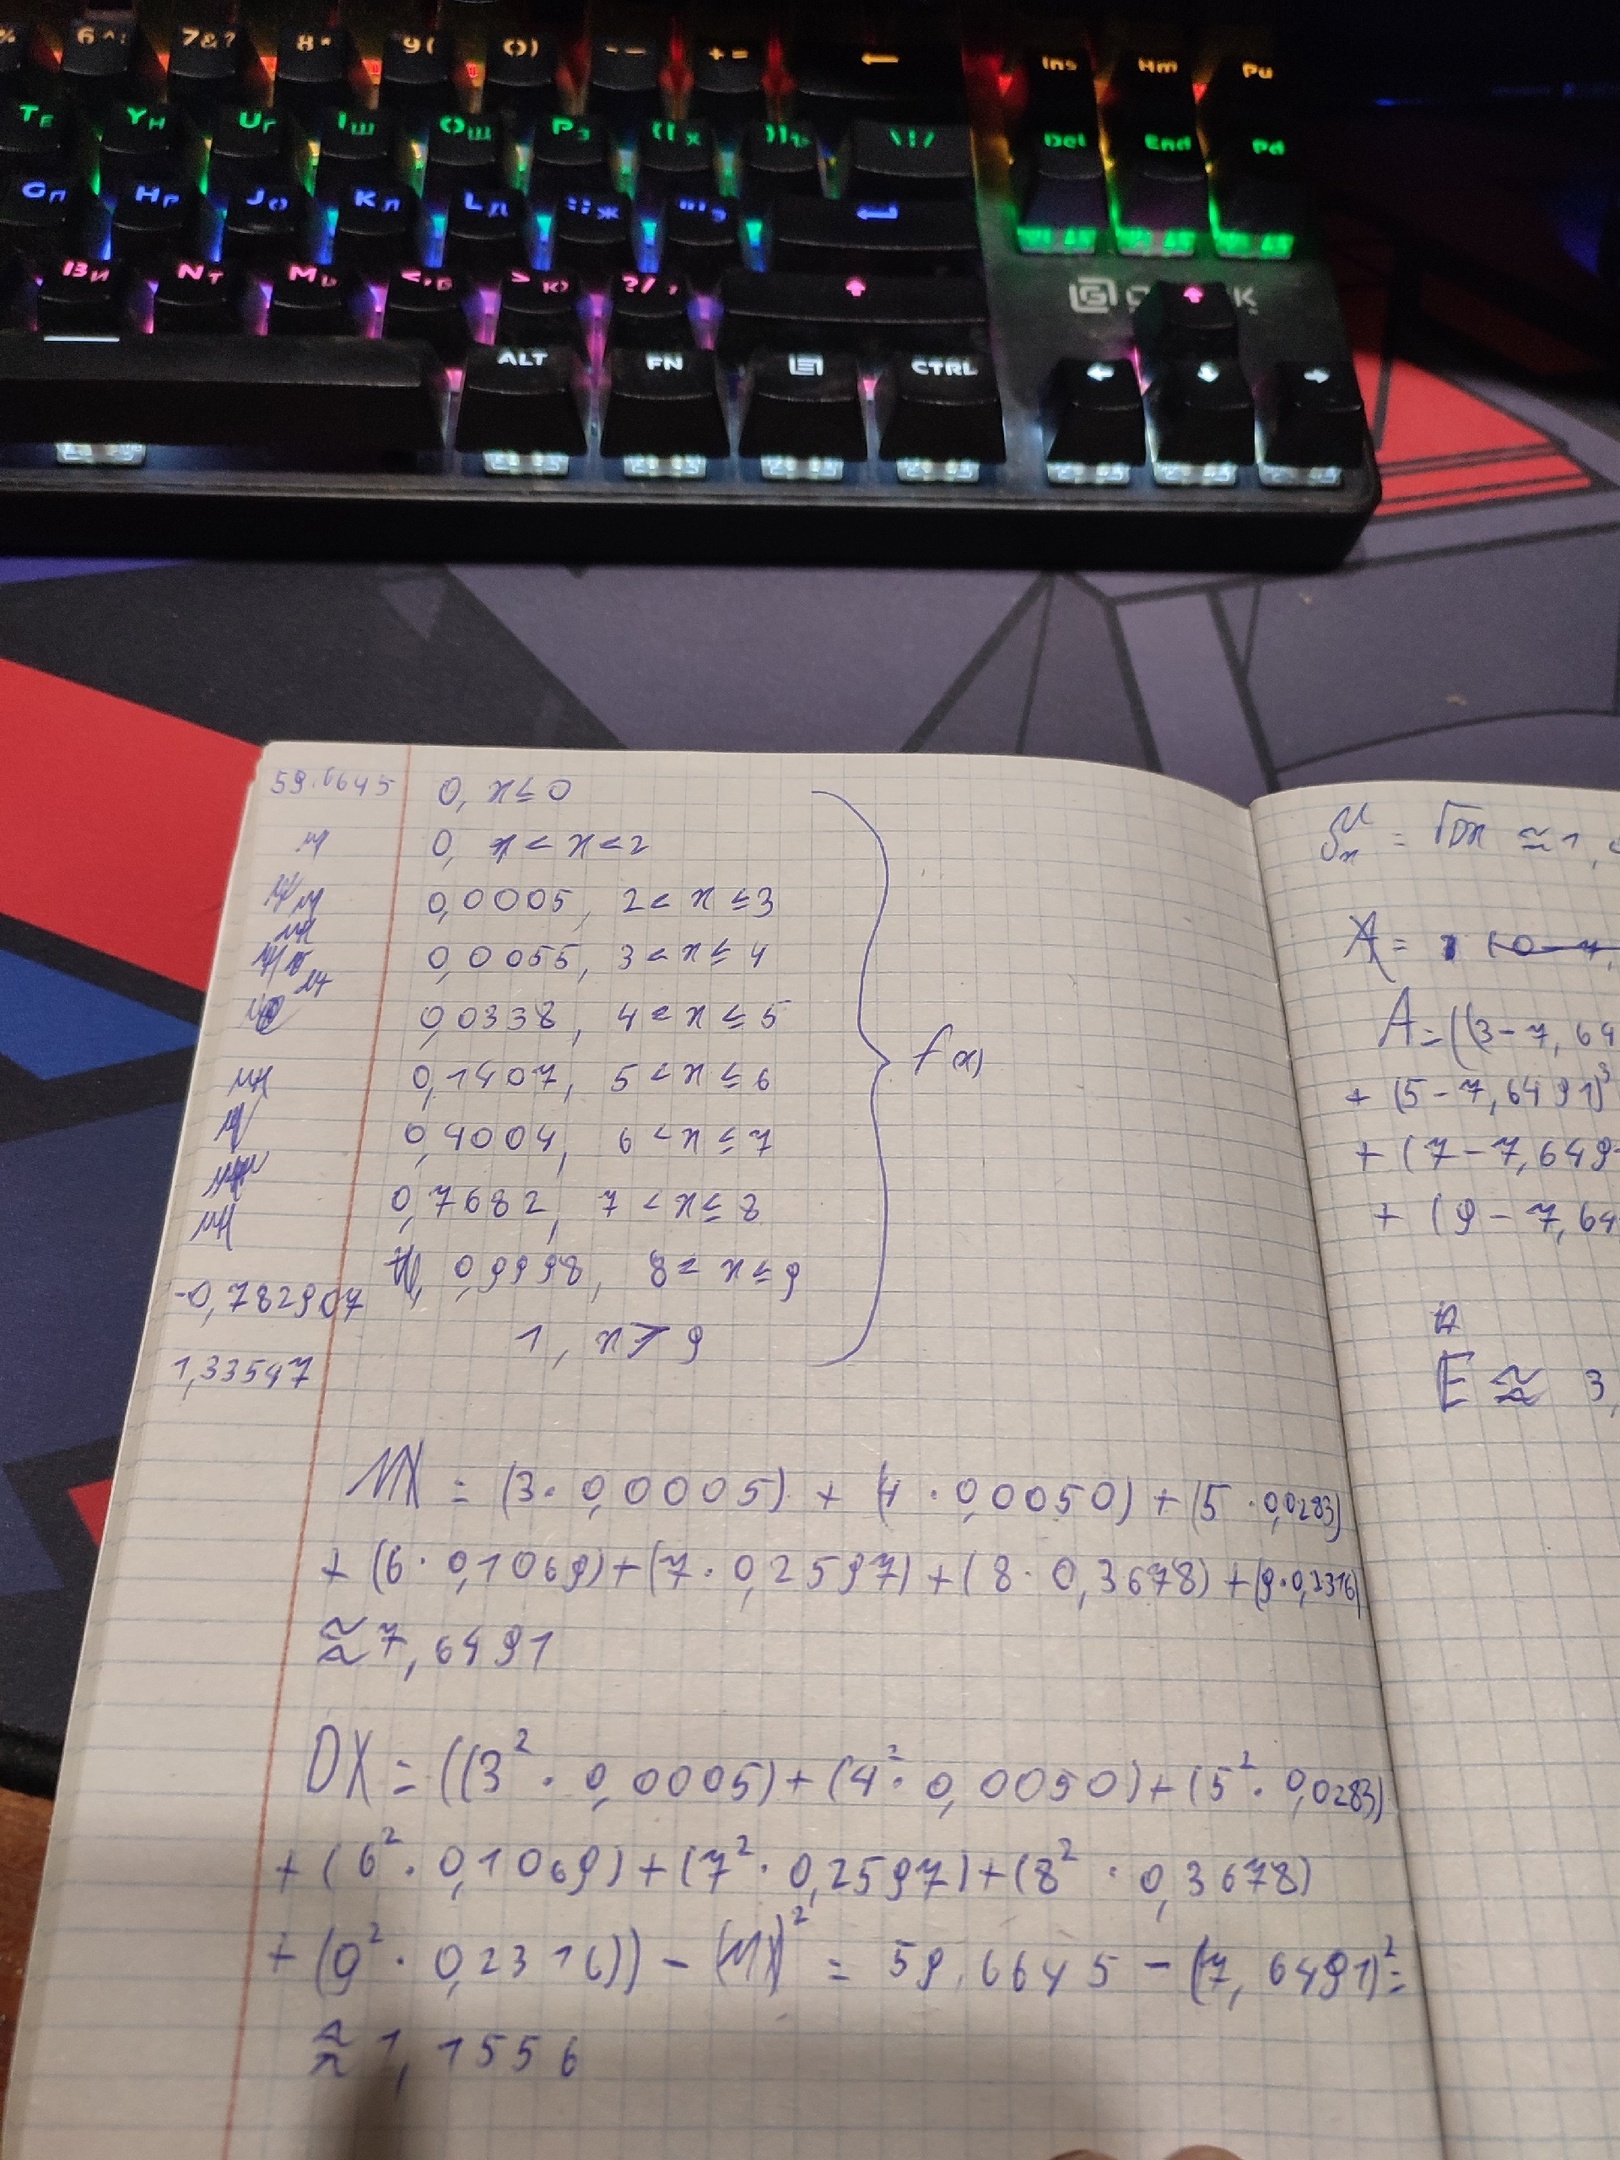 6^: 7&? 8* 9( 0) -- += ← Ins Hm Pu
TЕ YН UГ IШ OЩ PЗ {[Х }]Ъ \|/ Del End Pd
GП HР JО KЛ LД :;Ж "'Э
BИ NТ MЬ <,Б >.Ю ?/,
ALT FN CTRL
59.6645 0, x ≤ 0
0, x < x < 2
0,0005, 2 < x ≤ 3
0,0055, 3 < x ≤ 4
0,0338, 4 < x ≤ 5
0,1407, 5 < x ≤ 6
f(x)
0,4004, 6 < x ≤ 7
0,7682, 7 < x ≤ 8
0,9998, 8 < x ≤ 9
-0,782907
1, x > 9
1,33547
MX = (3 · 0,0005) + (4 · 0,0050) + (5 · 0,0283)
+ (6 · 0,1069) + (7 · 0,2597) + (8 · 0,3678) + (9 · 0,2316)
≈ 7,6491
DX = ((3² · 0,0005) + (4² · 0,0050) + (5² · 0,0283)
+ (6² · 0,1069) + (7² · 0,2597) + (8² · 0,3678)
+ (9² · 0,2316)) - (MX)² = 59,6645 - (7,6491)² =
≈ 1,1556
= √Dx ≈ 1,
A =
A = ((3 - 7,64
+ (5 - 7,6491)³
+ (7 - 7,649
+ (9 - 7,64
E ≈ 3,